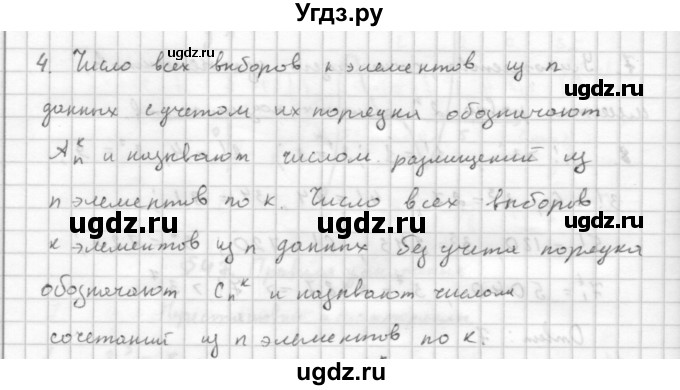 Угдз.ру
4. Число всех выборов к элементов из n
данных с учетом их порядка обозначают
Aₙᵏ и называют числом размещений из
n элементов по к. Число всех выборов
к элементов из n данных без учета порядка
обозначают Cₙᵏ и называют числом
сочетаний из n элементов по к.
ugdz.ru
ugdz.ru
ugdz.ru
ugdz.ru
ugdz.ru
ugdz.ru
ugdz.ru
ugdz.ru
ugdz.ru
ugdz.ru